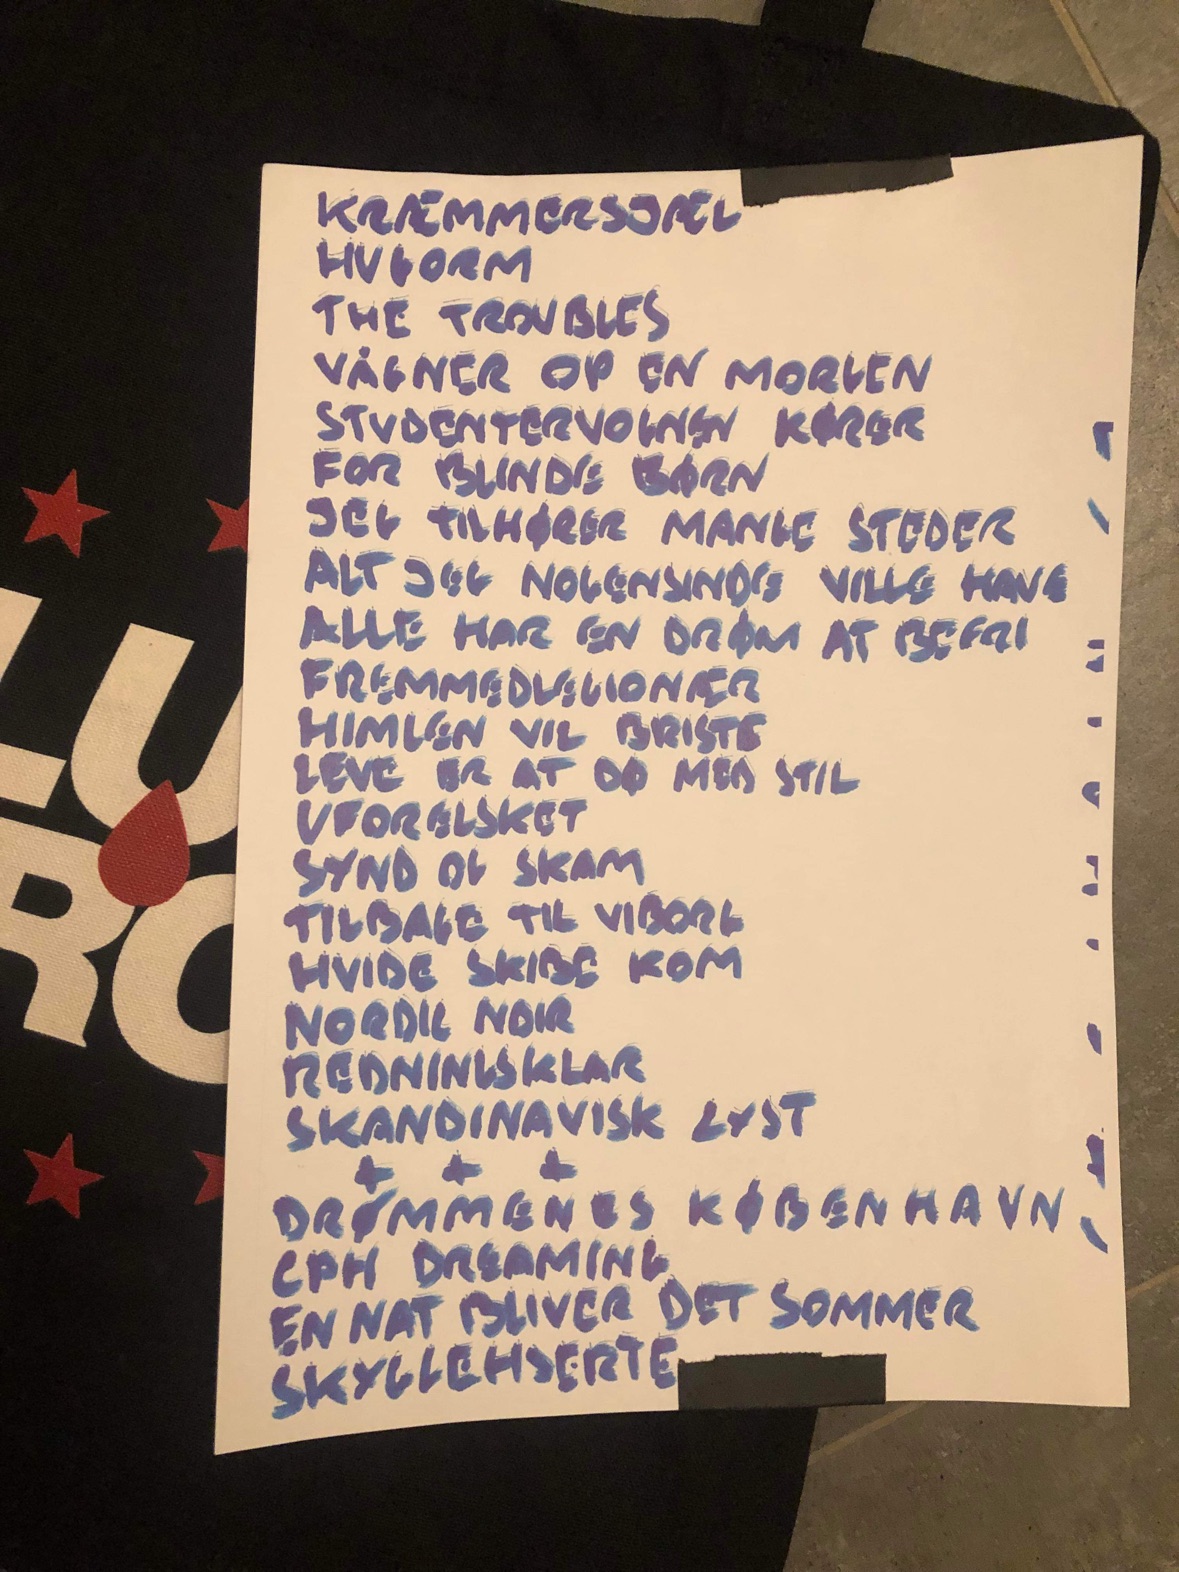 KRÆMMERSJÆL
HUGORM
THE TROUBLES
VÅGNER OP EN MORGEN
STUDENTERVOGNEN KØRER
FOR BLINDE BØRN
JEG TILHØRER MANGE STEDER
ALT JEG NOGENSINDE VILLE HAVE
ALLE HAR EN DRØM AT BEFRI
FREMMEDLEGIONÆR
HIMLEN VIL BRISTE
LEVE ER AT DØ MED STIL
UFORELSKET
SYND OG SKAM
TILBAGE TIL VIBORG
HVIDE SKIBE KOM
NORDIC NOIR
REDNINGSKLAR
SKANDINAVISK LYST
+ + +
DRØMMENES KØBENHAVN
CPH DREAMING
EN NAT BLIVER DET SOMMER
SKYLLEHJERTE
LU
RO